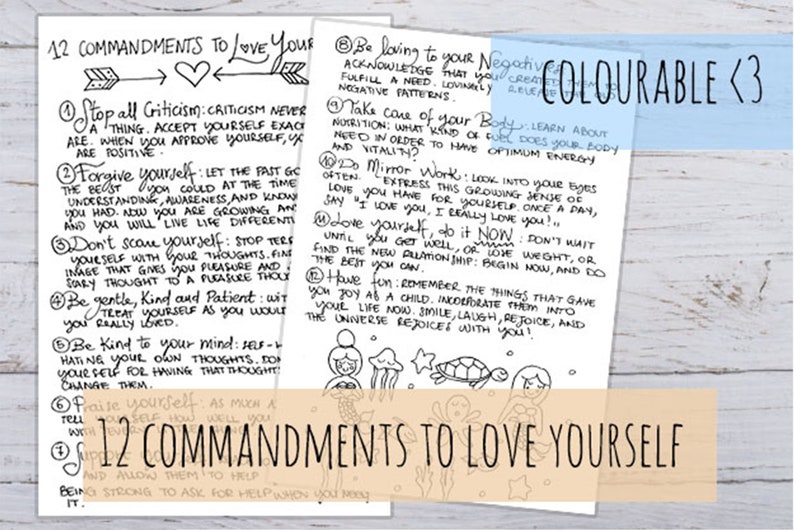 12 COMMANDMENTS TO LOVE YOUR
① Stop all Criticism: CRITICISM NEVER
A THING. ACCEPT YOURSELF EXAC
ARE. WHEN YOU APPROVE YOURSELF, Y
ARE POSITIVE.
② Forgive yourself: LET THE PAST GO
THE BEST YOU COULD AT THE TIME
UNDERSTANDING, AWARENESS, AND KNOW
YOU HAD. NOW YOU ARE GROWING AN
AND YOU WILL LIVE LIFE DIFFERENTL
③ Don't scare yourself: STOP TERR
YOURSELF WITH YOUR THOUGHTS. FIN
IMAGE THAT GIVES YOU PLEASURE AND
SCARY THOUGHT TO A PLEASURE THOU
④ Be gentle, Kind and Patient: WIT
TREAT YOURSELF AS YOU WOUL
YOU REALLY LOVED.
⑤ Be Kind to your mind: SELF-
HATING YOUR OWN THOUGHTS. DON
YOURSELF FOR HAVING THAT THOUGHT
CHANGE THEM.
⑥ Praise yourself: AS MUCH A
TELL YOURSELF HOW WELL YOU
WITH EVERY
⑦ Support
AND ALLOW THEM TO HELP
BEING STRONG TO ASK FOR HELP WHEN YOU NEED
IT.
⑧ Be loving to your Negatives
ACKNOWLEDGE THAT YOU CREATED THEM TO
FULFILL A NEED. LOVINGLY RELEASE
NEGATIVE PATTERNS.
⑨ Take care of your Body: LEARN ABOUT
NUTRITION: WHAT KIND OF FUEL DOES YOUR BODY
NEED IN ORDER TO HAVE OPTIMUM ENERGY
AND VITALITY?
⑩ Do Mirror Work: LOOK INTO YOUR EYES
OFTEN. EXPRESS THIS GROWING SENSE OF
LOVE YOU HAVE FOR YOURSELF. ONCE A DAY,
SAY "I LOVE YOU, I REALLY LOVE YOU!"
⑪ Love yourself, do it NOW: DON'T WAIT
UNTIL YOU GET WELL, OR LOSE WEIGHT, OR
FIND THE NEW RELATIONSHIP: BEGIN NOW, AND DO
THE BEST YOU CAN.
⑫ Have fun: REMEMBER THE THINGS THAT GAVE
YOU JOY AS A CHILD. INCORPORATE THEM INTO
YOUR LIFE NOW. SMILE, LAUGH, REJOICE, AND
THE UNIVERSE REJOICES WITH YOU!
COLOURABLE <3
12 COMMANDMENTS TO LOVE YOURSELF